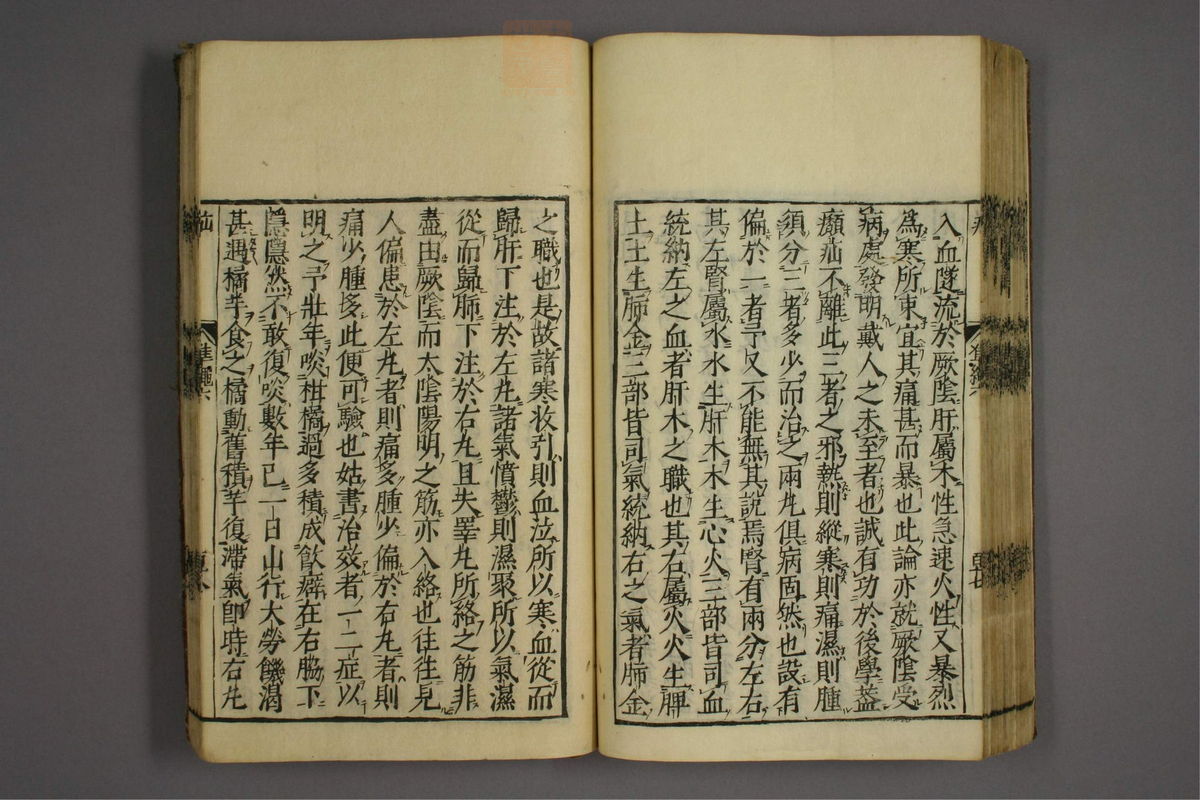 入血隧流於厥陰肝屬木性急速火性又暴烈
爲寒所束宜其痛甚而暴也此論亦就厥陰受
病處發明戴人之未至者也誠有功於後學蓋
㿗疝不離此三者之邪熱則縱寒則痛濕則腫
須分三者多少而治之兩丸俱病固然也設有
偏於一者予又不能無其說焉腎有兩分左右
其左腎屬水水生肝木木生心火三部皆司血
統納左之血者肝木之職也其右屬火火生脾
土土生肺金三部皆司氣統納右之氣者肺金
之職也是故諸寒收引則血泣所以寒血從而
歸肝下注於左丸諸氣憤鬱則濕聚所以氣濕
從而歸肺下注於右丸且夫睪丸所絡之筋非
盡由厥陰而太陰陽明之筋亦入絡也往往見
人偏患於左丸者則痛多腫少偏於右丸者則
痛少腫多此便可驗也姑書治效者一二症以
明之予壯年啖柑橘過多積成飲癖在右脇下
隱隱然不敢復啖數年已一日山行大勞饑渴
甚遇橘芋食之橘動舊積芋復滯氣即時右丸
疝